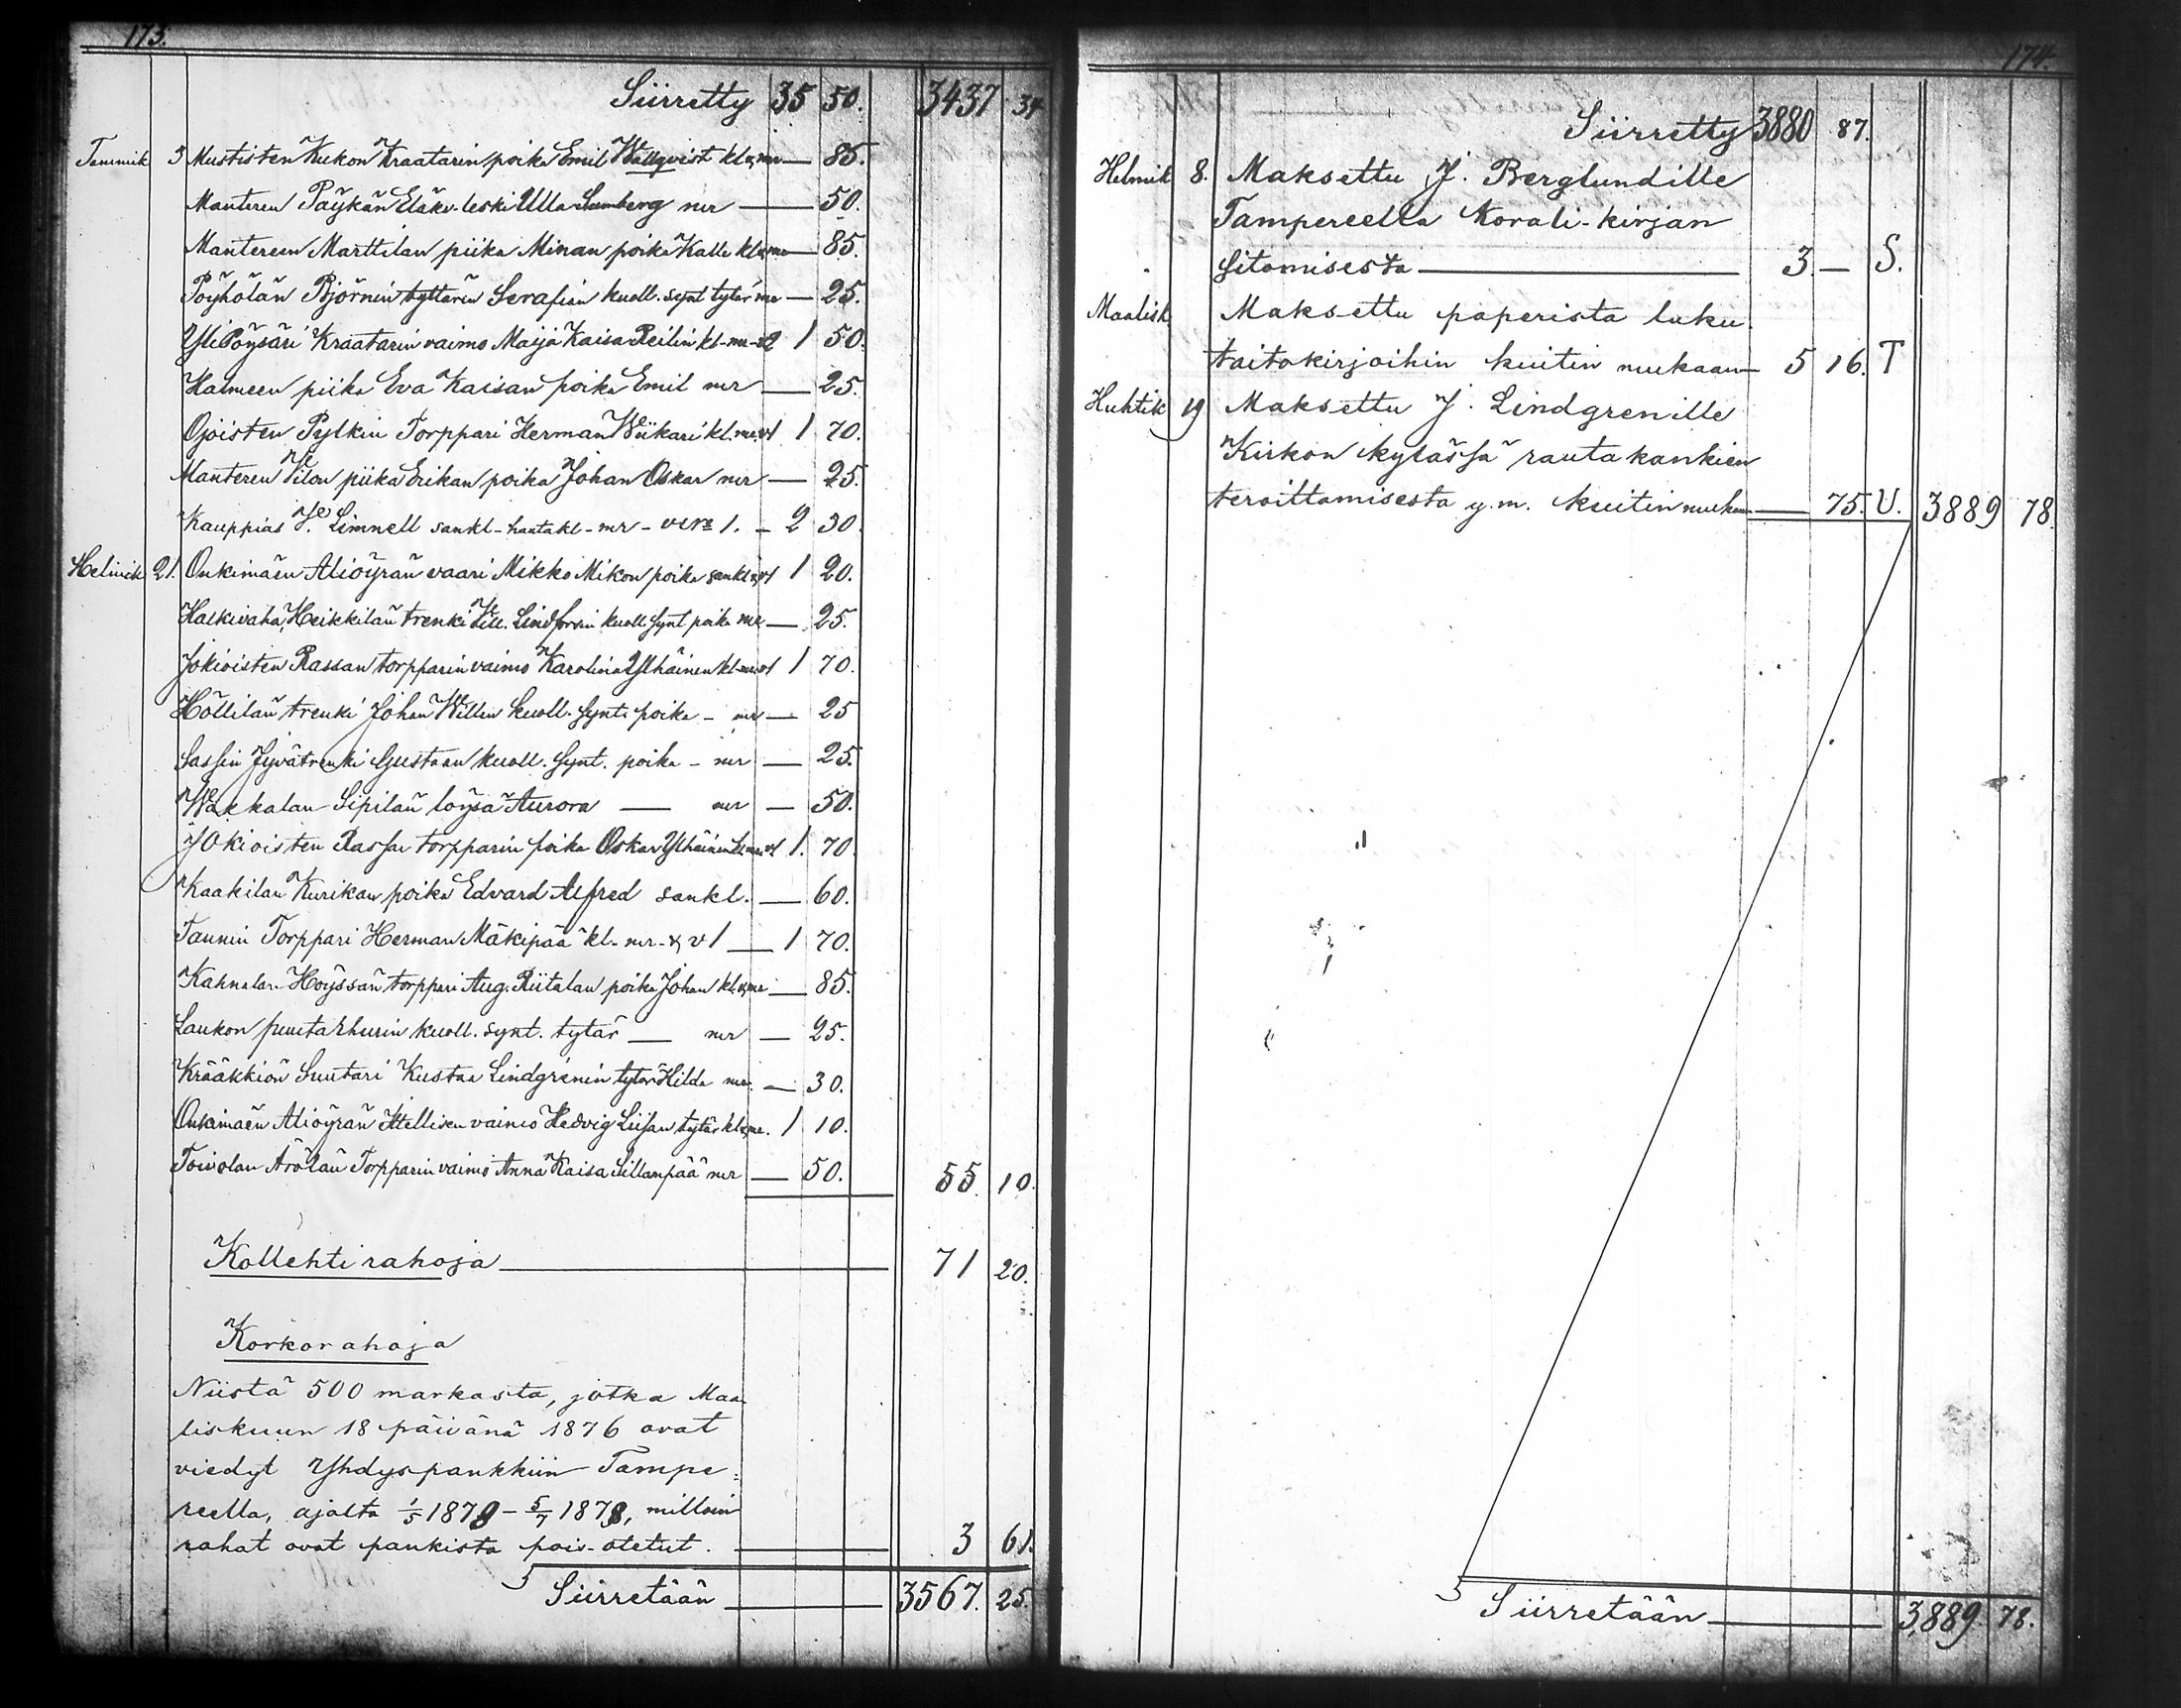 173.
Siirretty 35 50. 3437 34
Tammik 5 Mustisten Kukon Kraatarin poika Emil Wallqvist kl & mr — 85.
Manteren Päykän Eläke-leski Ulla Lumberg mr — 50.
Mantereen Marttilan piika Minan poika Kalle kl & mr — 85.
Pöyhölän Björnin tyttären Serafian kuoll. synt tytär mr — 25.
Yli Pöysäri Kraatarin vaimo Maija Kaisa Reilin kl-mr-v 2 1 50.
Halmeen piika Eva Kaisan poika Emil mr — 25.
Ojoisten Pylkin Torppari Herman Wiikari kl. mr. v 1 1 70.
Manteren Wilon piika Erikan poika Johan Oskar mr — 25.
Kauppias J. Limnell sankl-hautakl-mr- 1. – 2 30.
Helmik 21. Onkimäen Alioÿrän vaari Mikko Mikon poika sankl & v 1 1 20.
Halkivaha, Heikkilän trenki Will. Lindforsin kuoll synt poika mr — 25.
Jokioisten Rassan torpparin vaimo Karolina Ylhäinen kl-mr-v 1 1 70.
Höllilän trenki Johan Willin kuoll. synt. poika – mr — 25
Sassin Jyvätrenki Gustaan kuoll. synt. poika – mr — 25.
Wakkalan Sipilän löysä Aurora — mr — 50.
Jokioisten Rassan torpparin poika Oskar Ylhäinen kl mr v 1 1. 70
Kaakilan Kurikan poika Edvard Alfred sankl. — 60.
Taunin Torppari Herman Mäkipää kl- mr- & v 1 — 1 70.
Kahnalan Höyssän torppari Aug. Riitalan poika Johan kl & mr — 85.
Laukon puutarhurin kuoll. synt. tytär — mr — 25.
Krääkkiön Suutari Kustaa Lindgrenin tytär Hilda mr. — 30.
Onkimäen Alioÿrän Itellisen vaimo Hedvig Liisan tytär kl & mr. 1 10.
Toivolan Arölän Torpparin vaimo Anna Kaisa Sillanpää mr — 50. 55. 10.
Kollehtirahoja — 71 20.
Korkorahoja
Niistä 500 markasta, jotka Maa
liskuun 18 päivänä 1876 ovat
viedyt Yhdyspankkiin Tampe=
reella, ajalta 1/5 1878 – 5/7 1878, milloin
rahat ovat pankista pois-otetut. — 3 61.
Siirretään — 3567. 25.
174.
Siirretty 3880 87.
Helmik 8. Maksettu J. Berglundille
Tampereella Korali-kirjan
sitomisesta — 3 — S.
Maalisk. Maksettu paperista luku-
taitokirjoihin kuitin mukaan — 5 16. T
Huhtik 19 Maksettu J. Lindgrenille
Kirkon kylässä rautakankien
teroittamisesta y. m. kuitin mukaan — 75. U. 3889 78.
Siirretään — 3,889. 78.